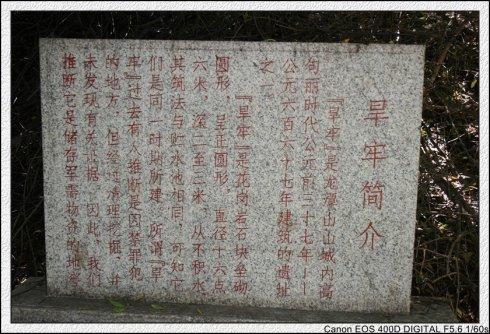 旱牢简介
『旱牢』是龙潭山山城内高
句丽时代公元前三十七年——
公元六百六十七年建筑的遗址
之一。
『旱牢』是花岗岩石块垒砌
圆形，呈正圆形，直径十六点
六米，深二至三米，从不积水
其筑法与贮水池相同，可知它
们是同一时期所建。所谓『旱
牢』过去有人推断是囚禁罪犯
的地方，但经过清理挖掘，并
未发现有关证据。因此，我们
推断它是储存军需物资的地窖
Canon EOS 400D DIGITAL F5.6 1/60s